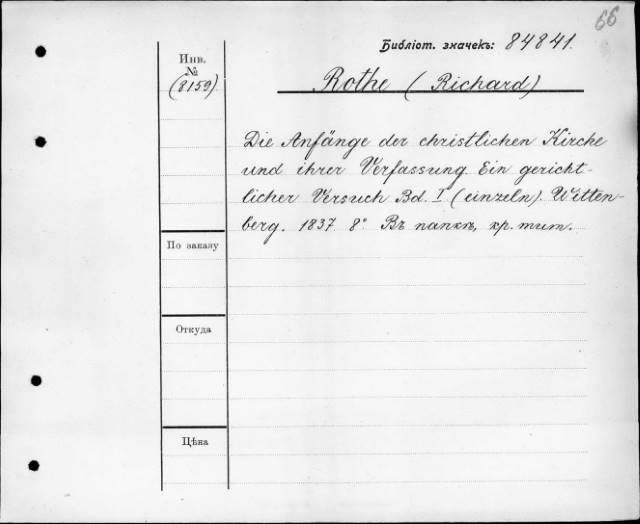 66
Библіот. значекъ: 84841.
Инв.
№
(8159)
Rothe (Richard)
Die Anfänge der christlichen Kirche
und ihrer Verfassung. Ein gericht-
licher Versuch Bd. I (einzeln). Witten-
berg. 1837. 8° Въ папкѣ, кр. тит.
По заказу
Откуда
Цѣна